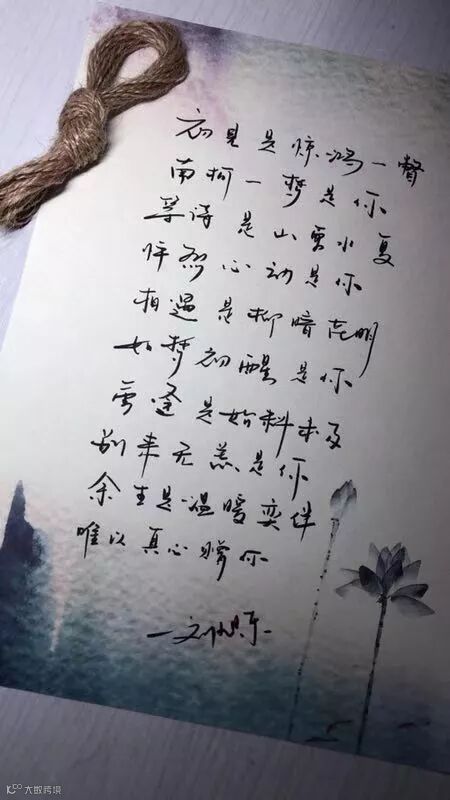 初见是惊鸿一瞥
南柯一梦是你
等待是山重水复
怦然心动是你
相遇是柳暗花明
如梦初醒是你
重逢是始料未及
别来无恙是你
余生是温暖奕伴
唯以真心赠你
大数跨境